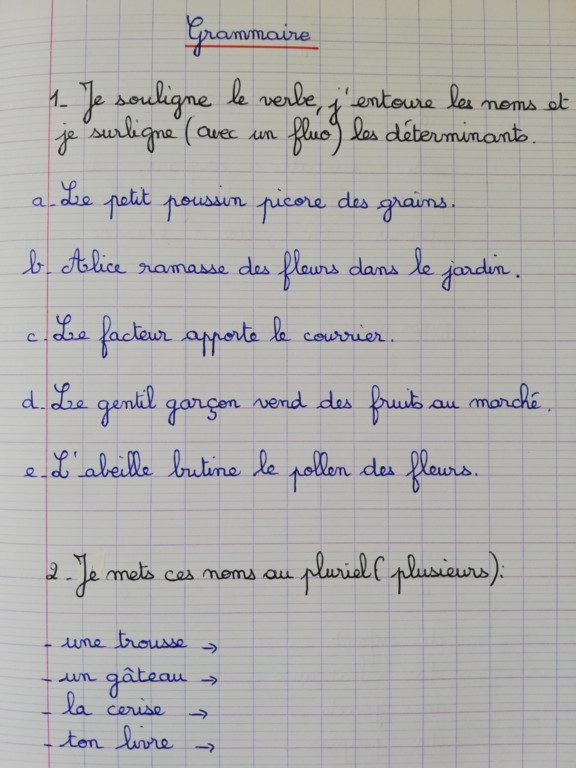 Grammaire
1_ Je souligne le verbe, j'entoure les noms et
je surligne (avec un fluo) les déterminants.
a_ Le petit poussin picore des grains.
b_ Alice ramasse des fleurs dans le jardin.
c_ Le facteur apporte le courrier.
d_ Le gentil garçon vend des fruits au marché.
e_ L'abeille butine le pollen des fleurs.
2_ Je mets ces noms au pluriel (plusieurs):
- une trousse →
- un gâteau →
- la cerise →
- ton livre →